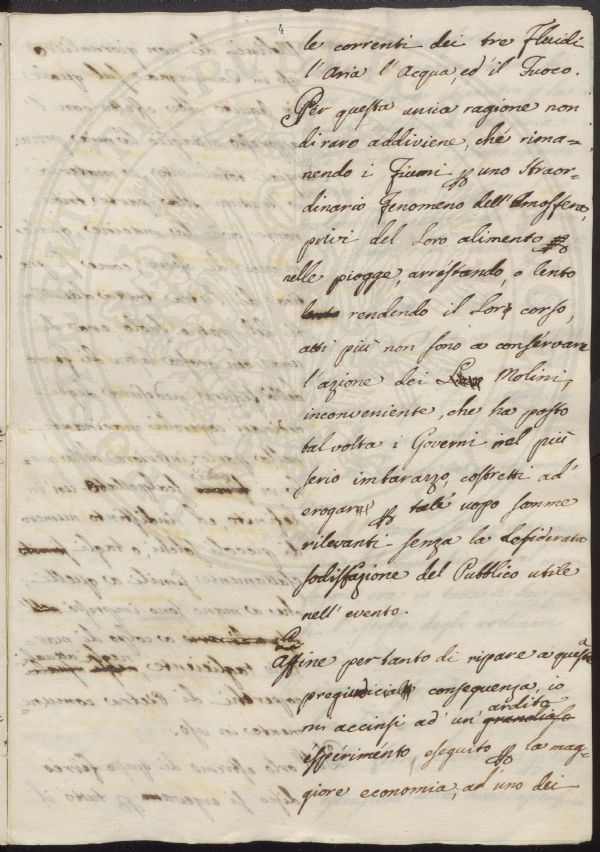 4
le correnti dei tre Fluidi
l'Aria l'Acqua, ed il Fuoco.
Per questa unica ragione non
di raro addiviene, ché rima-
nendo i Fiumi p uno straor-
dinario Fenomeno dell'Atmosfera,
privi del loro alimento
nelle piogge, arrestando, o lento
lento rendendo il loro corso,
atti più non sono a conservare
l'azione dei Molini,
inconveniente, che ha posto
tal volta i Governi nel più
serio imbarazzo, costretti ad'
erogar p tale uopo somme
rilevanti senza la desiderata
sodisfazione del Pubblico utile
nell'evento.
Affine per tanto di ripare a questa
consequenza, io
ardito
mi accinsi ad' un' grandioso
esperimento, eseguito p la mag-
giore economia, ad' uno dei